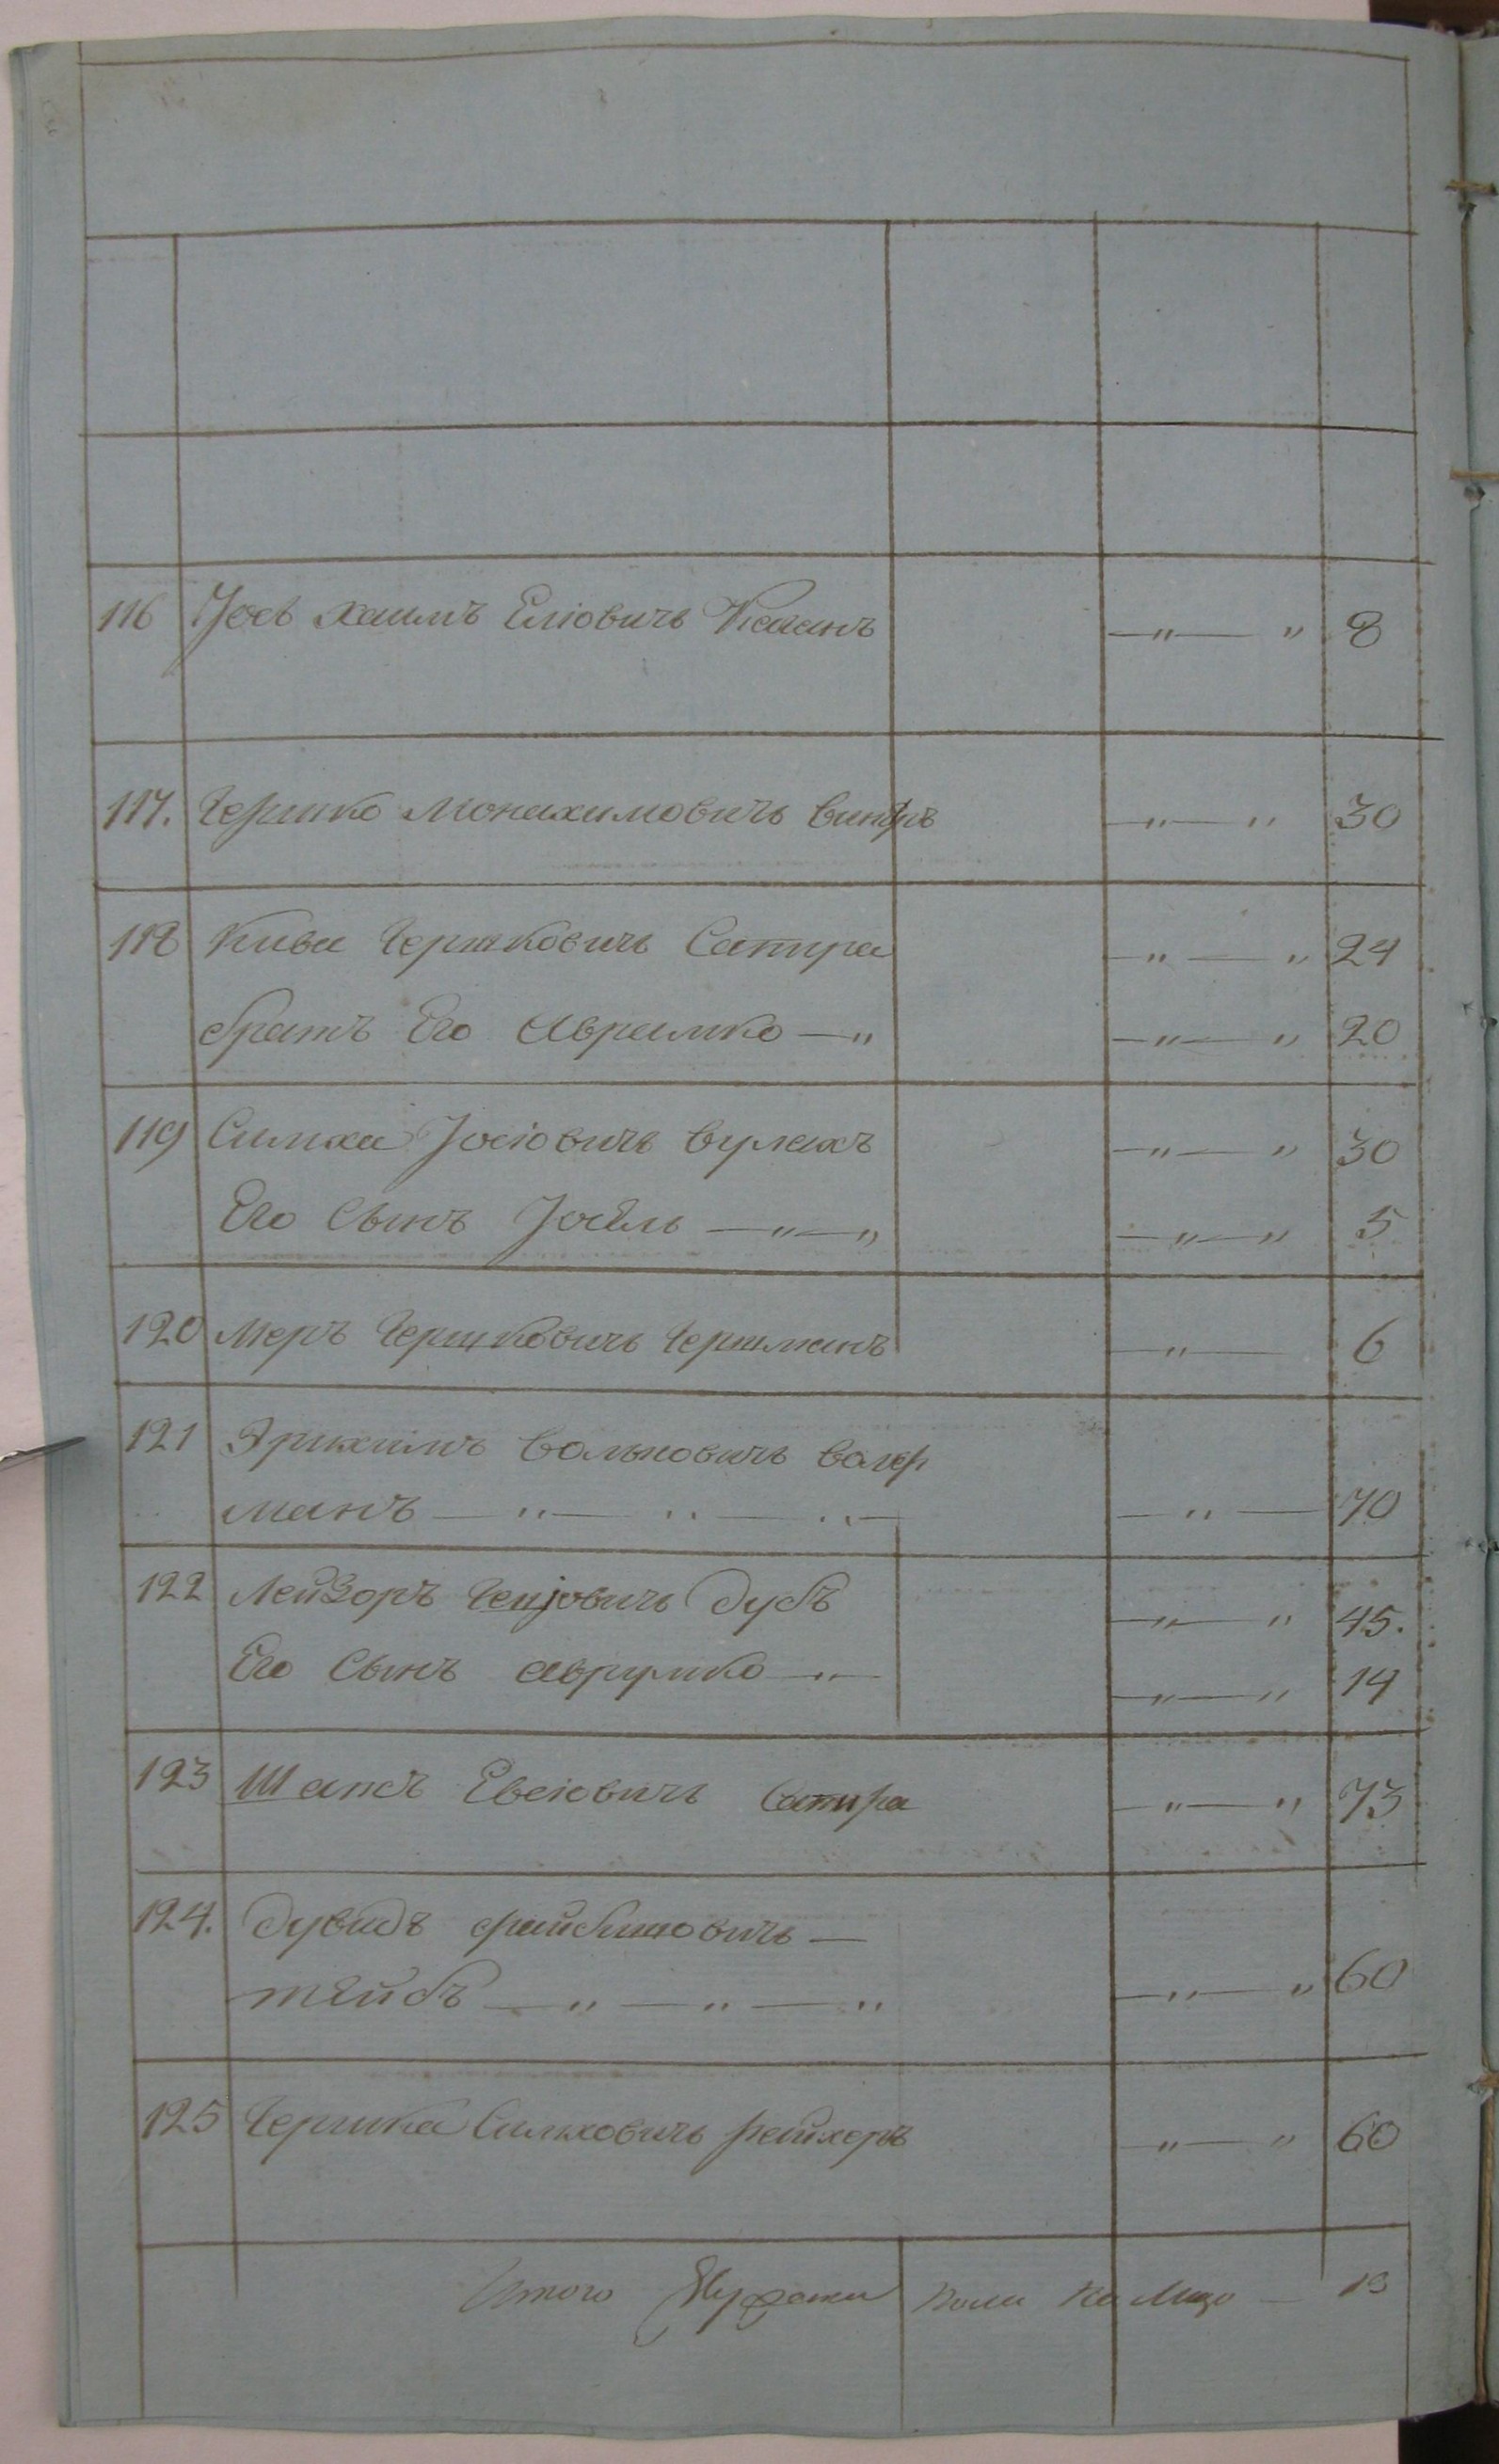 116 Јось Хаимъ Еліовичъ Каганъ —"— " 8
117. Гершко Монахимовичъ Винтръ —"— " 30
118 Кива Гершковичъ Сатира —"— " 24
братъ Его Аврамко —" —"— " 20
119 Симха Јосіовичъ Вулахъ —"— " 30
Его Сынъ Јосѣль —"—" —"— " 5
120 Меръ Гершковичъ Гершманъ —"— 6
121 Эрихимъ Вольковичъ Валер
манъ — " — " — " — — " — 70
122 Лейзоръ Дубъ —"— " 45.
Его Сынъ Аврумко —"— —"— " 14
123 Шапсъ Евсіовичъ Сатира —"— " 73
124. Дувидъ Файбишовичъ —
тейбъ — " — " — " —"— " 60
125 Гершка Симховичъ Рейхеръ —"— " 60
Итого Мужска Пола На Лицо — 13